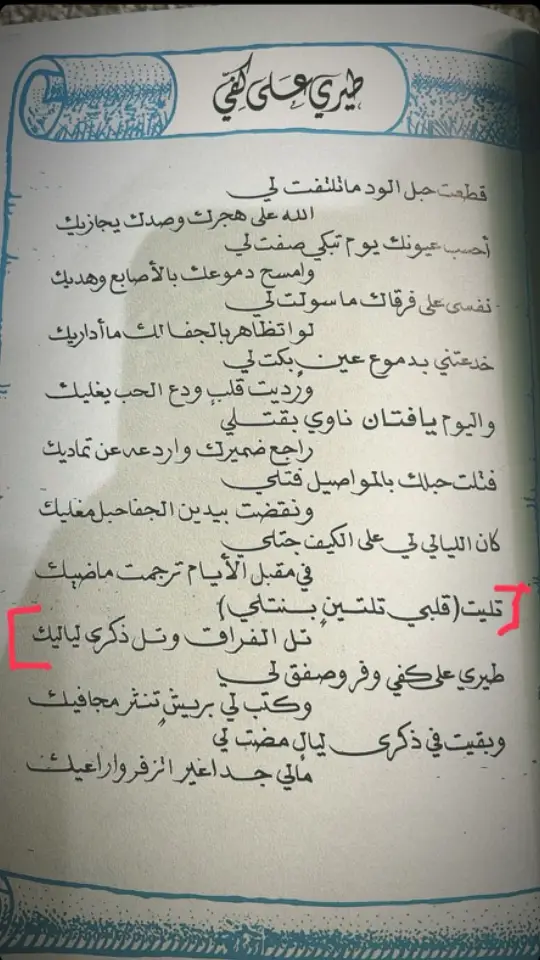 طيري على كفي
قطعت حبل الود ما تلتفت لي
الله على هجرك وصدك يجازيك
أحسب عيونك يوم تبكي صفت لي
وامسح دموعك بالأصابع وهديك
نفسي على فرقاك ما سولت لي
لو اتظاهر بالجفا لك ما أداريك
خدعتني بدموع عين بكت لي
ورديت قلبٍ ودع الحب يغليك
واليوم يافتان ناوي بقتلي
راجع ضميرك واردعه عن تماديك
فتلت حبلك بالمواصيل فتلي
ونقضت بيدين الجفا حبل مغليك
كان الليالي لي على الكيف جتلي
في مقبل الأيام ترجمت ماضيك
تليت (قلبي تلتينٍ بنتلي)
تل الفراق وتل ذكرى لياليك
طيري على كفي وفر وصفق لي
وكتب لي بريشٍ تنثر مجافيك
وبقيت في ذكرى ليالٍ مضت لي
مالي جدا غير اتزفر واراعيك